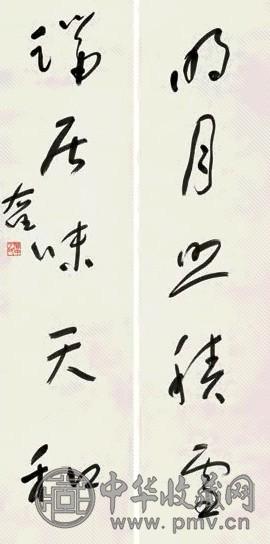 明月照積雪
端居味天和
中华收藏网
www.pmv.cn